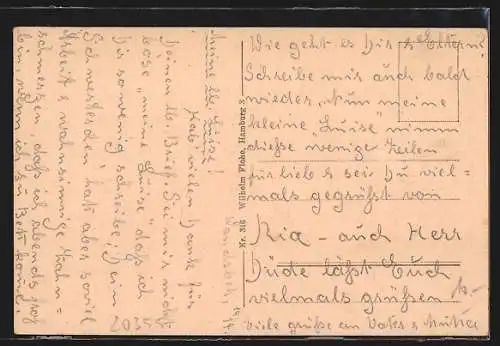 Meine lb. Luise!
Hab vielen Dank für
Deinen lb. Brief. Sei mir nicht
böse „meine Luise" daß ich
Dir sowenig schreibe, Dein
Schwesterchen hat aber soviel
Arbeit u. wahnsinnige Zahn=
schmerzen, daß ich abends froh
bin, wenn ich zu Bett komme.
Wie geht es Dir u. Eltern?
Schreibe mir auch bald
wieder. Nun meine
kleine „Luise" nimm
diese wenige Zeilen
für lieb u. sei Du viel-
mals gegrüßt von
Ria - auch Herr
Düde läßt Euch
vielmals grüßen
viele grüße an Vater u. Mutter
Wilhelm Floho, Hamburg 3
Nr. 318